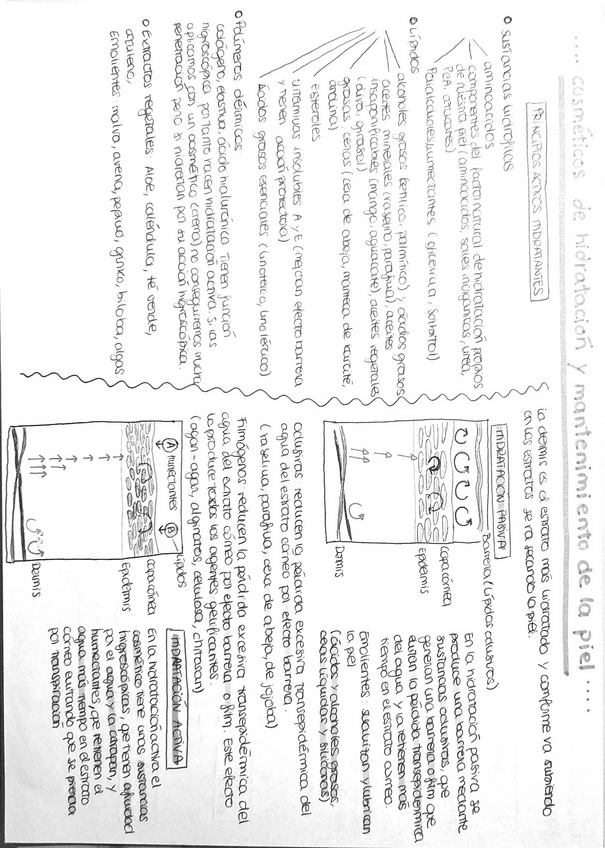 .... cosméticos de hidratación y mantenimiento de la piel ....
PRINCIPIOS ACTIVOS HIDRATANTES
• Sustancias hidrofílicas
aminoácidos
componentes del factor natural de hidratación propios
de nuestra piel (aminoácidos, sales inorgánicas, urea,
PCA, azúcares)
Polialcoholes, humectantes (glicerina, sorbitol)
• Lípidos
alcoholes grasos (cetílico, palmínico) y ácidos grasos
aceites minerales (vaselina, parafina), aceites
insaponificables (mango, aguacate), aceites vegetales
(oliva, girasol)
grasas, ceras (cera de abeja, manteca de karité,
Esteroles
vitaminas insolubles A y E (mejoran efecto barrera
y tienen acción protectora)
Ácidos grasos esenciales (linoleico, linolénico)
• Polímeros dérmicos
colágeno, elastina, ácido hialurónico. Tienen función
higroscópica por tanto hacen hidratación activa. Si las
aplicamos con un cosmético (crema) no conseguiremos mucha
penetración pero si hidratan por su acción higroscópica.
• Extractos vegetales: Aloe, caléndula, té verde,
azuleno,
Emolientes: malva, avena, pepino, ginkco, biloba, algas
la dermis es el estrato más hidratado y conforme va subiendo
en los estratos se va secando la piel.
HIDRATACIÓN PASIVA
Barrera (lípidos oclusivos)
Capa córnea
Epidermis
Dermis
En la hidratación pasiva se
produce una barrera mediante
sustancias oclusivas, que
generan una barrera o film que
evitan la pérdida transepidérmica
del agua y la retienen más
tiempo en el estrato córneo.
Emolientes: suavizan y lubrican
la piel
(ácidos y alcoholes grasos,
ceras líquidas y siliconas)
Oclusivas: reducen la pérdida excesiva transepidérmica del
agua del estrato córneo por efecto barrera.
(vaselina, parafina, cera de abeja, de jojoba)
Filmógenos: reducen la pérdida excesiva transepidérmica del
agua del estrato córneo por efecto barrera o film. Este efecto
lo produce todos los agentes gelificantes.
(agar-agar, alginatos, celulosa, chitosan)
HIDRATACIÓN ACTIVA
A humectantes
B lípidos
Capa córnea
Epidermis
Dermis
En la hidratación activa el
cosmético tiene unas sustancias
higroscópicas, que tienen afinidad
por el agua y la atrapan, y
humectantes, que retienen el
agua más tiempo en el estrato
córneo evitando que se pierda
por transpiración